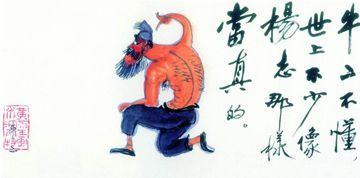 牛二不懂，
世上不少像
楊志那樣
當真的。